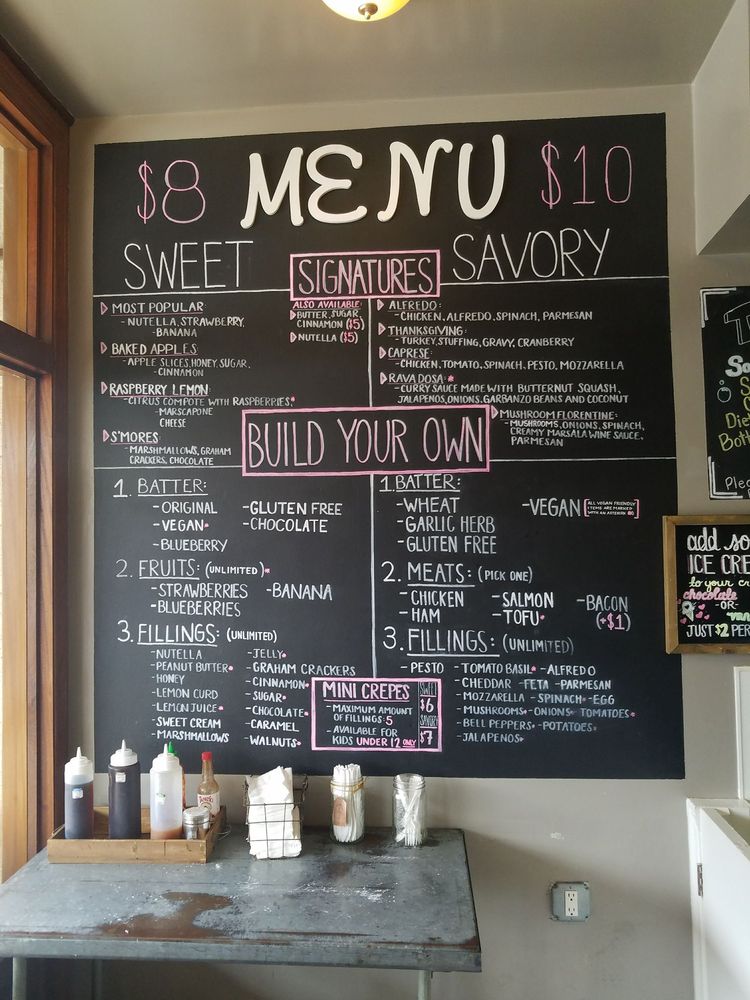 $8 MENU $10
SWEET
SIGNATURES
SAVORY
MOST POPULAR:
-NUTELLA, STRAWBERRY,
-BANANA
BAKED APPLES:
-APPLE SLICES, HONEY, SUGAR,
-CINNAMON
RASPBERRY LEMON:
-CITRUS COMPOTE WITH RASPBERRIES,*
-MARSCAPONE
CHEESE
S'MORES:
-MARSHMALLOWS, GRAHAM
CRACKERS, CHOCOLATE
ALSO AVAILABLE:
BUTTER, SUGAR,
CINNAMON ($5)
NUTELLA ($5)
ALFREDO:
-CHICKEN, ALFREDO, SPINACH, PARMESAN
THANKSGIVING:
-TURKEY, STUFFING, GRAVY, CRANBERRY
CAPRESE:
-CHICKEN, TOMATO, SPINACH, PESTO, MOZZARELLA
RAVA DOSA:*
-CURRY SAUCE MADE WITH BUTTERNUT SQUASH,
JALAPENOS, ONIONS, GARBANZO BEANS AND COCONUT
MUSHROOM FLORENTINE:
-MUSHROOMS, ONIONS, SPINACH,
CREAMY MARSALA WINE SAUCE,
PARMESAN
BUILD YOUR OWN
1. BATTER:
-ORIGINAL -GLUTEN FREE
-VEGAN* -CHOCOLATE
-BLUEBERRY
2. FRUITS: (UNLIMITED)*
-STRAWBERRIES -BANANA
-BLUEBERRIES
3. FILLINGS: (UNLIMITED)
-NUTELLA -JELLY*
-PEANUT BUTTER* -GRAHAM CRACKERS
-HONEY -CINNAMON*
-LEMON CURD -SUGAR*
-LEMON JUICE* -CHOCOLATE*
-SWEET CREAM -CARAMEL
-MARSHMALLOWS -WALNUTS*
1. BATTER:
-WHEAT -VEGAN [ALL VEGAN FRIENDLY
ITEMS ARE MARKED
WITH AN ASTERISK (*)]
-GARLIC HERB
-GLUTEN FREE
2. MEATS: (PICK ONE)
-CHICKEN -SALMON -BACON
-HAM -TOFU* (+$1)
3. FILLINGS: (UNLIMITED)
-PESTO -TOMATO BASIL* -ALFREDO
-CHEDDAR -FETA -PARMESAN
-MOZZARELLA -SPINACH* -EGG
-MUSHROOMS* -ONIONS* TOMATOES*
-BELL PEPPERS* -POTATOES*
-JALAPENOS*
MINI CREPES
-MAXIMUM AMOUNT
OF FILLINGS: 5
-AVAILABLE FOR
KIDS UNDER 12 ONLY
SWEET
$6
SAVORY
$7
add so
ICE CRE
to your cr
chocolate
-OR-
JUST $2 PER